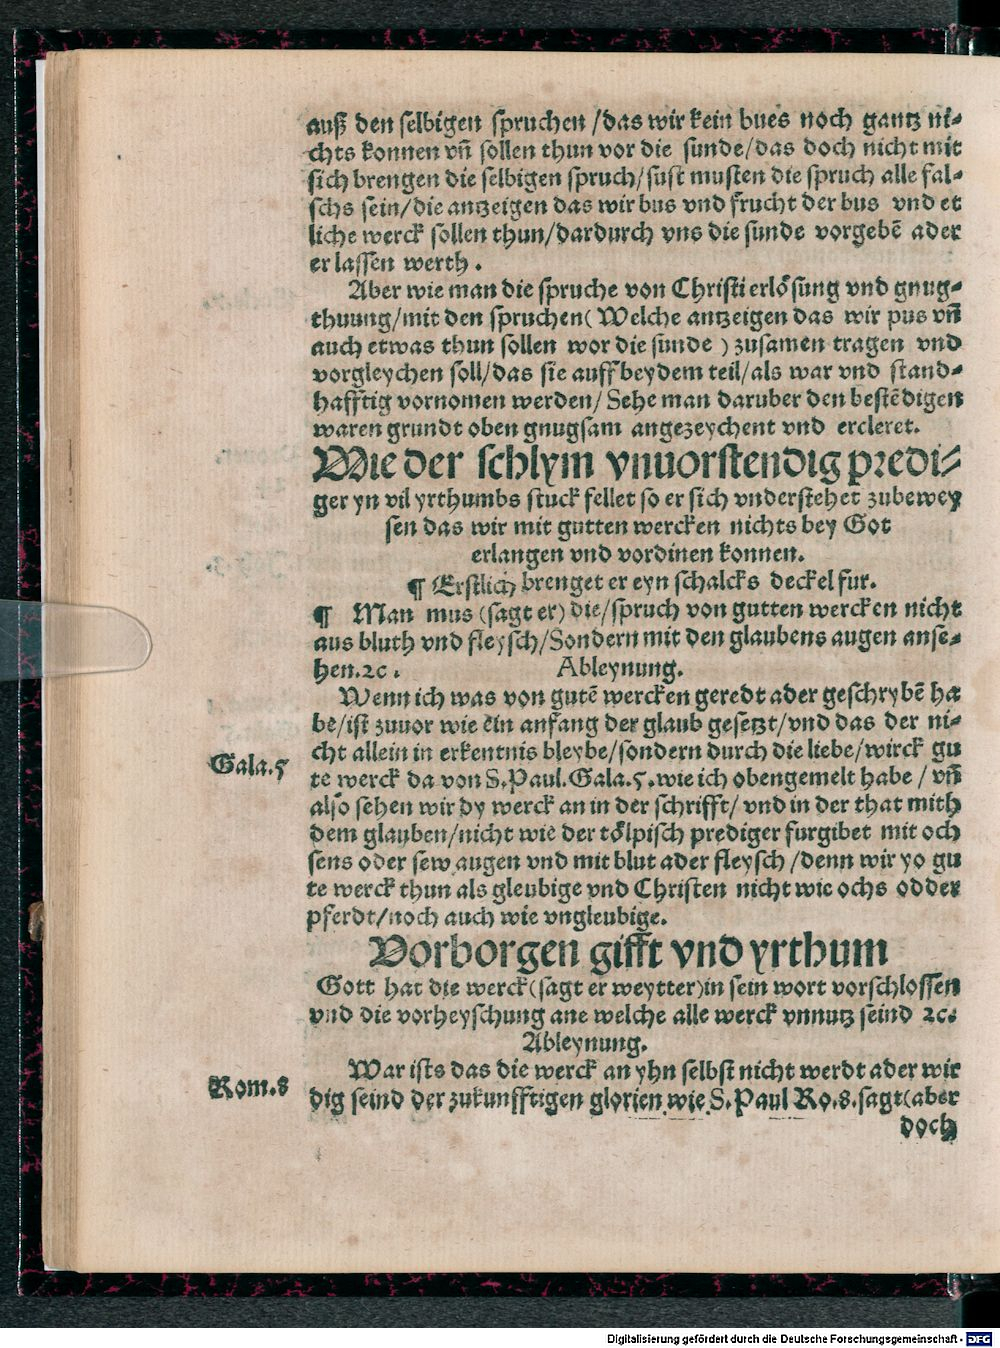 auß den selbigen spruchen /das wir kein bues noch gantz ni⸗
chts konnen vñ sollen thun vor die sunde/das doch nicht mit
sich brengen die selbigen spruch/sust musten die spruch alle fal⸗
schs sein/die antzeigen das wir bus vnd frucht der bus vnd et
liche werck sollen thun/dardurch vns die sunde vorgebē ader
er lassen werth .
Aber wie man die spruche von Christi erlösung vnd gnug⸗
thuung/mit den spruchen( Welche antzeigen das wir pus vñ
auch etwas thun sollen wor die sunde ) zusamen tragen vnd
vorgleychen soll/das sie auff beydem teil/als war vnd stand⸗
hafftig vornomen werden/ Sehe man daruber den bestēdigen
waren grundt oben gnugsam angezeychent vnd ercleret.
Wie der schlym vnuorstendig predi⸗
ger yn vil yrthumbs stuck fellet so er sich vnderstehet zubewey
sen das wir mit gutten wercken nichts bey Got
erlangen vnd vordinen konnen.
¶ Erstlich brenget er eyn schalcks deckel fur.
¶ Man mus (sagt er) die/spruch von gutten wercken nicht
aus bluth vnd fleysch/Sondern mit den glaubens augen anse⸗
hen.ꝛc . Ableynung.
Wenn ich was von gutē wercken geredt ader geschrybē ha
be/ist zuuor wie ein anfang der glaub gesetzt/vnd das der ni⸗
cht allein in erkentnis bleybe/sondern durch die liebe/wirck gu
Gala.5
te werck da von S.Paul.Gala.5.wie ich obengemelt habe / vñ
also sehen wir dy werck an in der schrifft/ vnd in der that mith
dem glauben/nicht wie der tölpisch prediger furgibet mit och
sens oder sew augen vnd mit blut ader fleysch /denn wir yo gu
te werck thun als gleubige vnd Christen nicht wie ochs odder
pferdt/noch auch wie vngleubige.
Vorborgen gifft vnd yrthum
Gott hat die werck(sagt er weytter)in sein wort vorschlossen
vnd die vorheyschung ane welche alle werck vnnutz seind ꝛc.
Ableynung.
War ists das die werck an yhn selbst nicht werdt ader wir
Rom.8
dig seind der zukunfftigen glorien wie S.Paul Ro.8.sagt(aber
doch
Digitalisierung gefördert durch die Deutsche Forschungsgemeinschaft - DFG